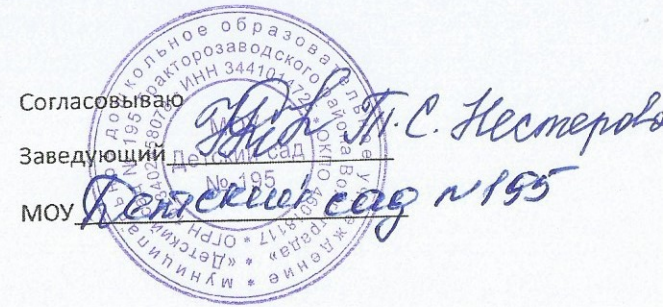 Согласовываю
Заведующий Т.С. Нестерова
МОУ Детский сад №195
муниципальное дошкольное образовательное учреждение
«Детский сад № 195 Тракторозаводского района Волгограда»
МОУ
Детский сад
№ 195